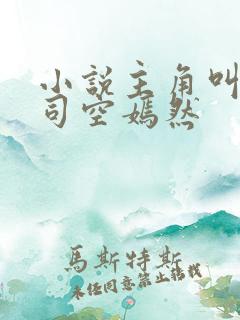 小說主角叫
司空嫣然
馬斯特斯
未經同意禁止轉載